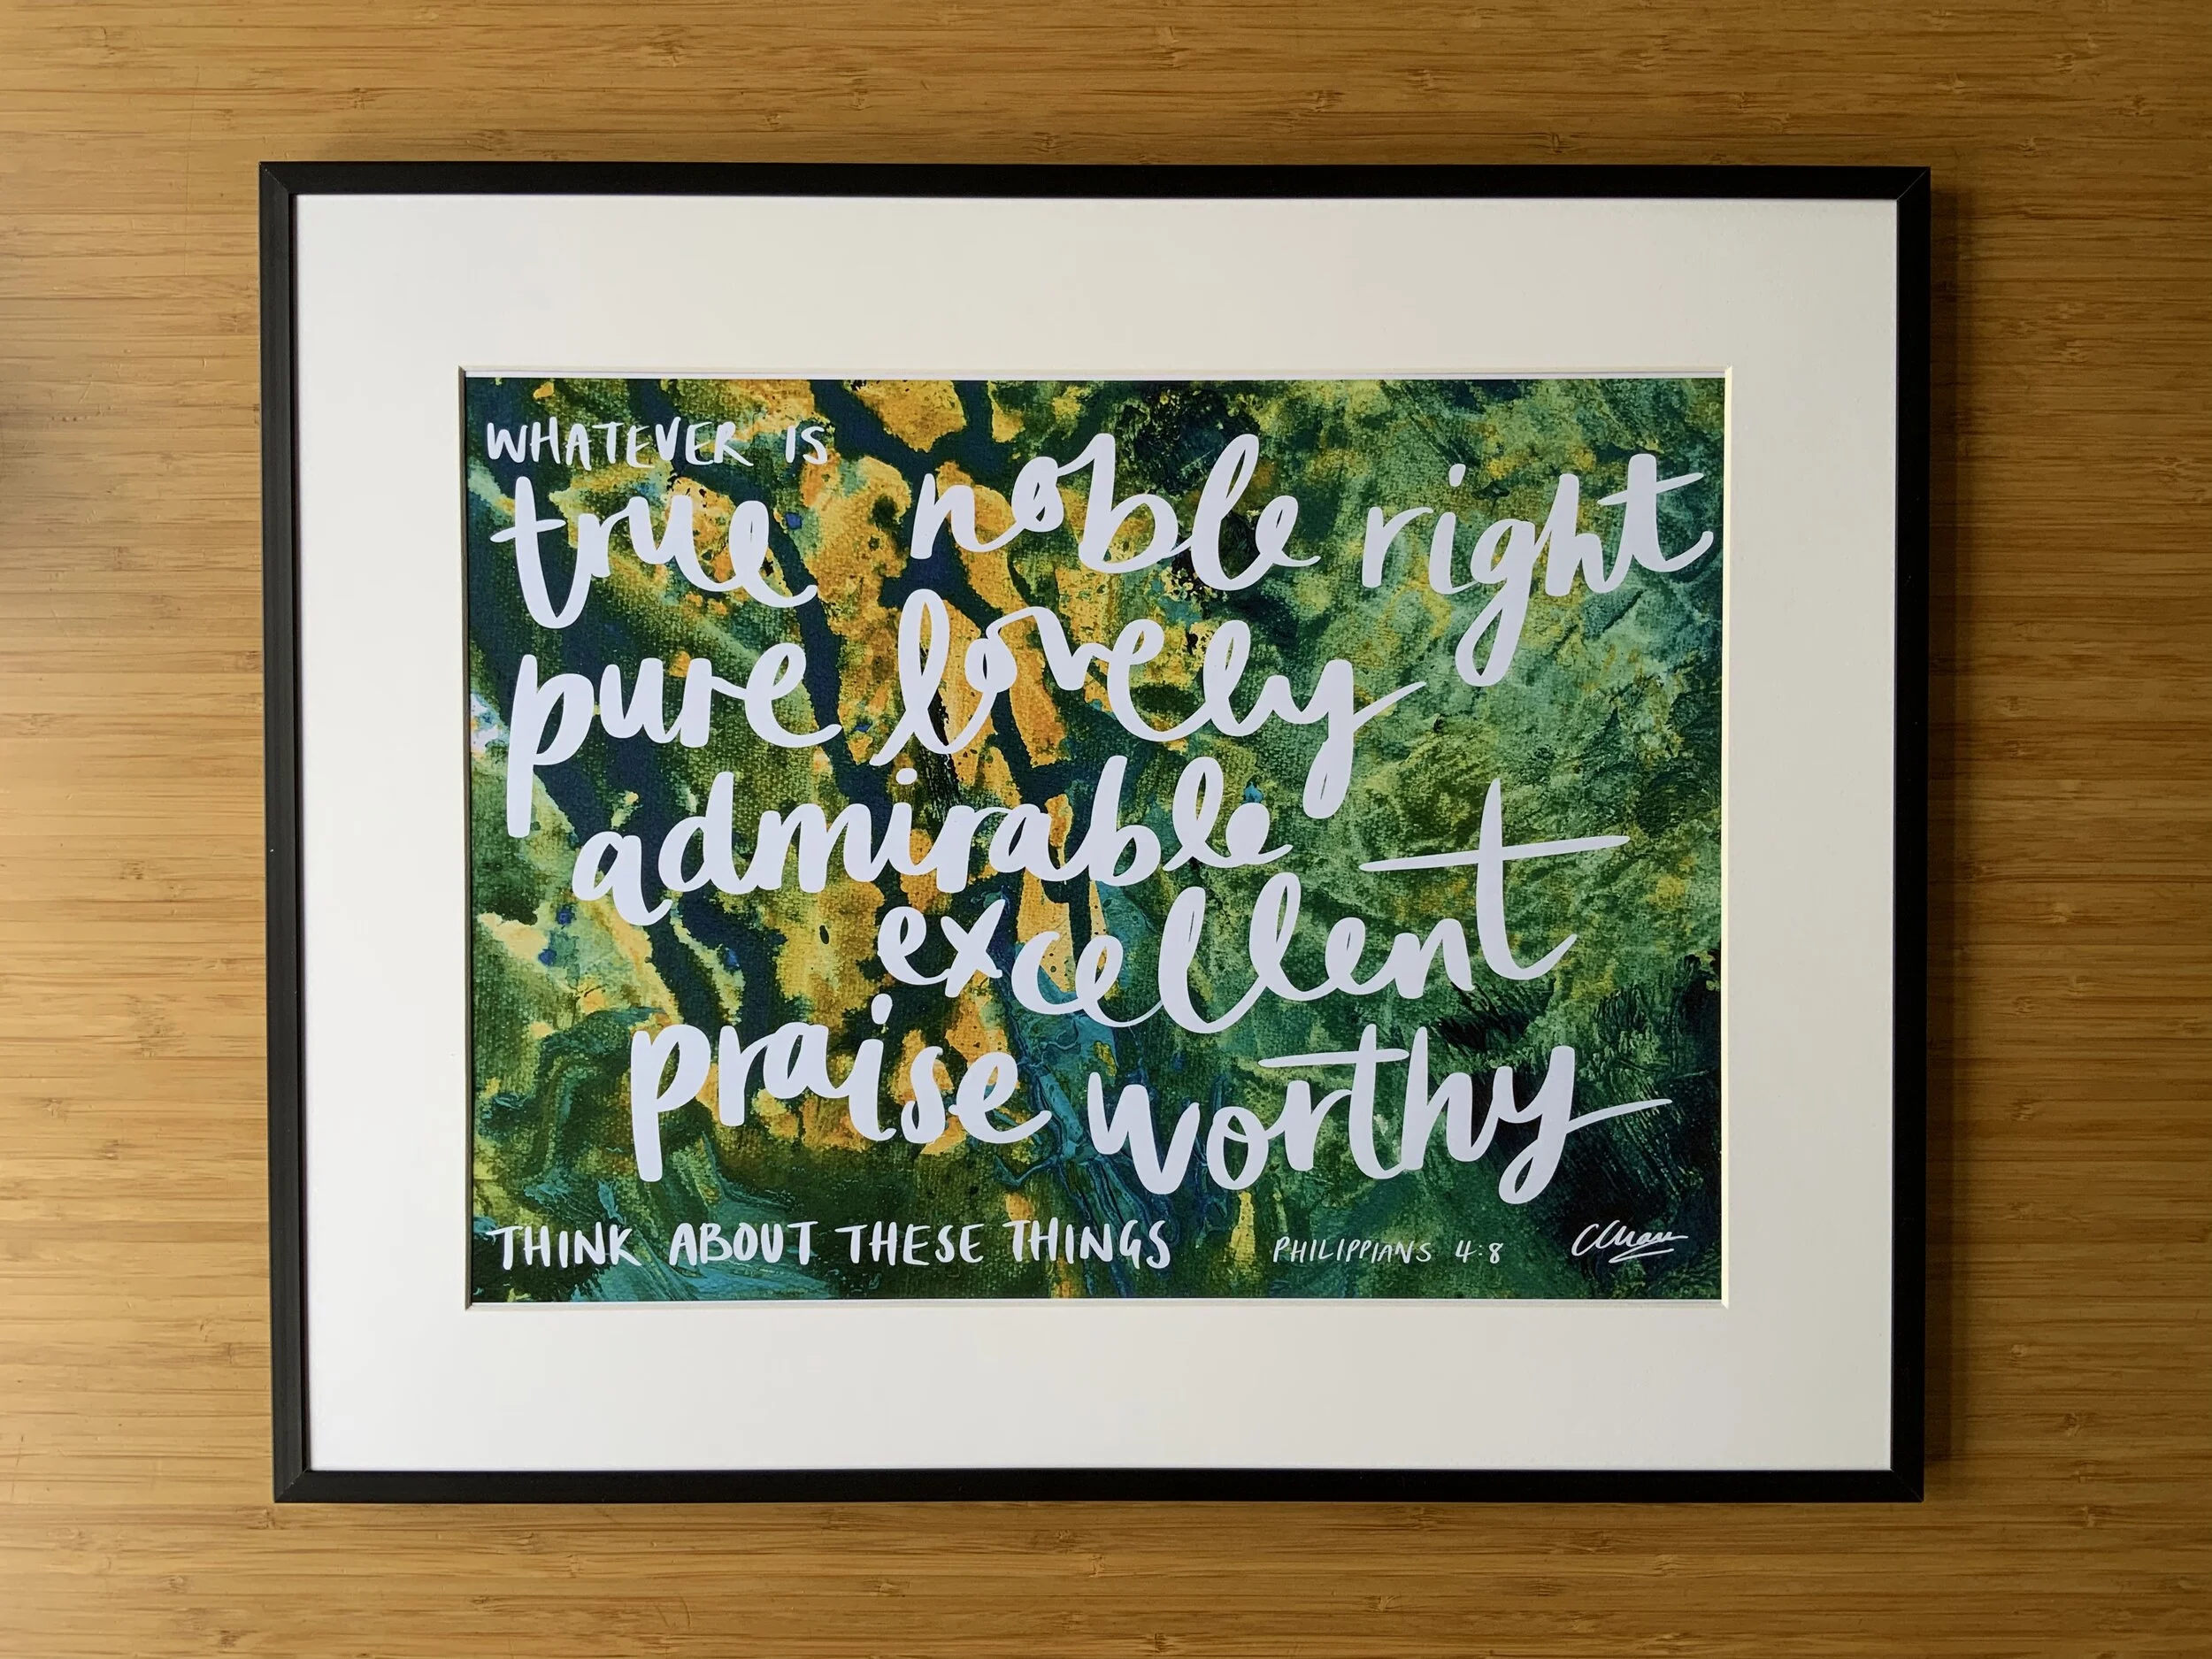 WHATEVER IS
true noble right
pure lovely
admirable
excellent
praise worthy
THINK ABOUT THESE THINGS
PHILIPPIANS 4:8